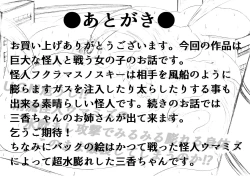 ●あとがき●
お買い上げありがとうございます。今回の作品は
巨大な怪人と戦う女の子のお話です。
怪人フクラマスノスキーは相手を風船のように
膨らますガスを注入したり太らしたりする事も
出来る素晴らしい怪人です。続きのお話では
三香ちゃんのお姉さんが出て来ます。
乞うご期待！
ちなみにバックの絵はかつて戦った怪人ウマミズ
によって超水膨れした三香ちゃんです。